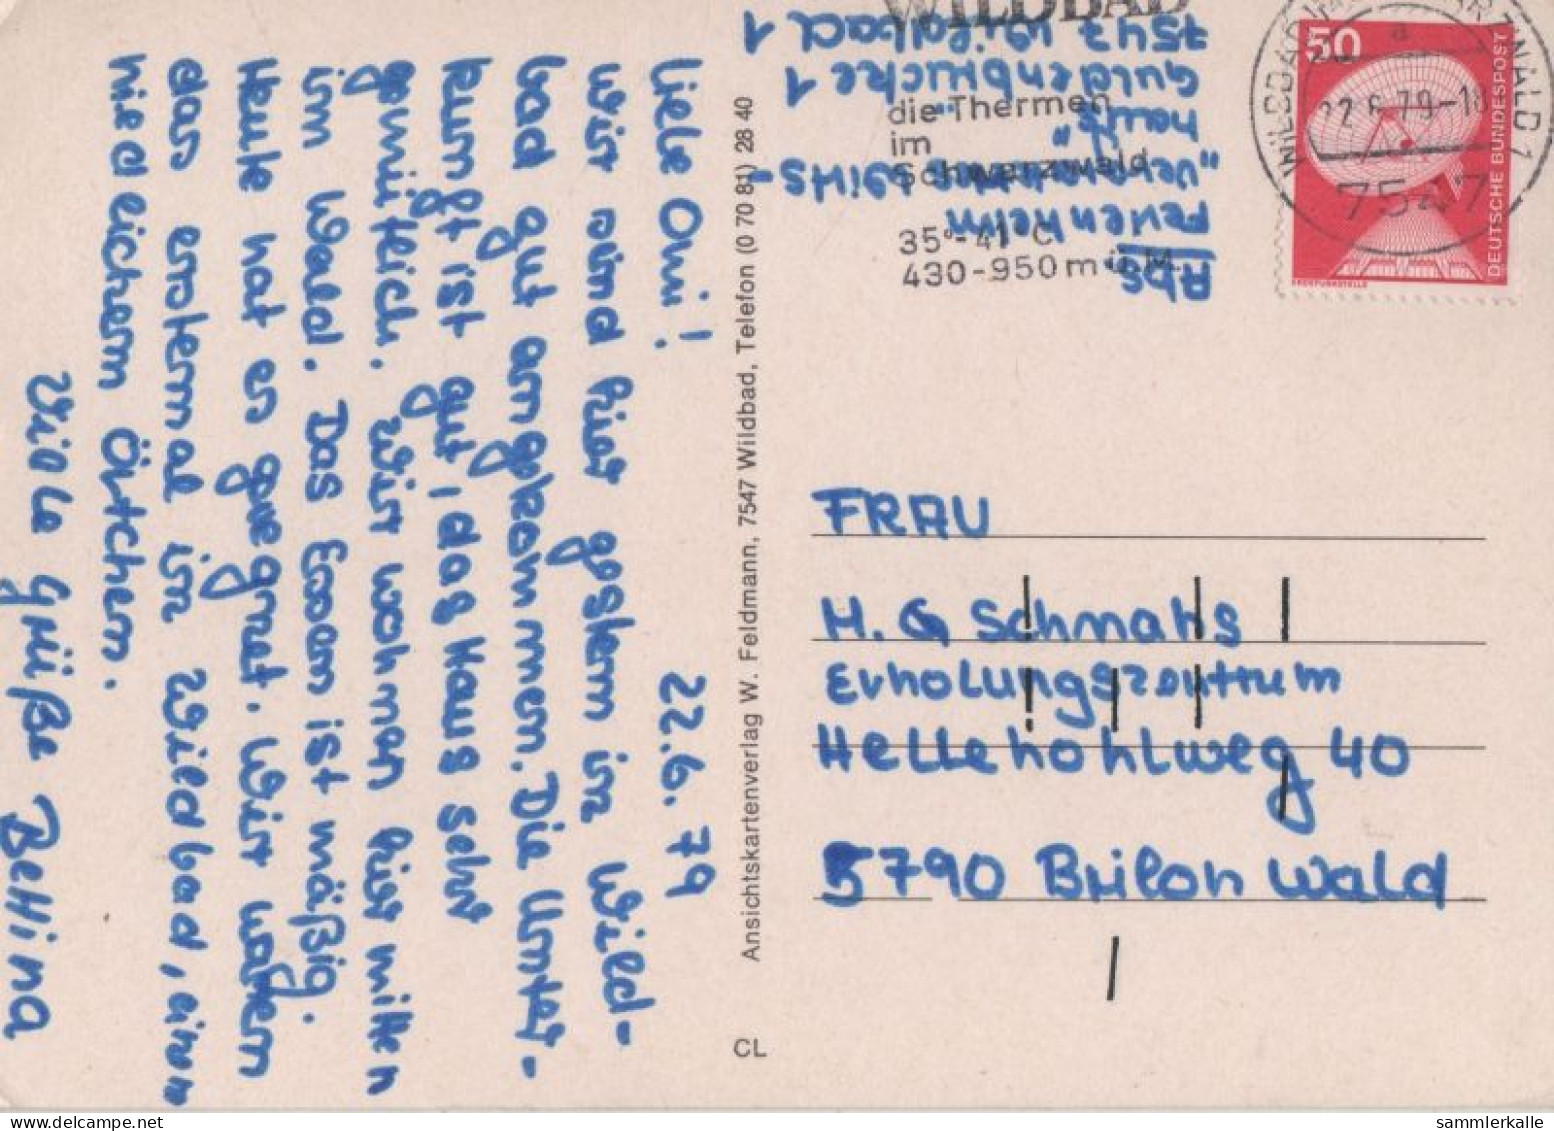 22.6.79
Liebe Omi!
Wir sind hier gestern in Wild-
bad gut angekommen. Die Unter-
kunft ist gut, das Haus sehr
gemütlich. Wir wohnen hier mitten
im Wald. Das Essen ist mäßig.
Heute hat es geregnet. Wir waren
das erstemal in Wildbad, einem
niedlichem Örtchen.
Viele Grüße Bettina
Ansichtskartenverlag W. Feldmann, 7547 Wildbad, Telefon (0 70 81) 28 40
CL
WILDBAD
die Thermen
im
Schwarzwald
35°-41°C
430-950 m ü.M.
Abs
Ferienheim
haus"
Guldenbrücke 1
7547 Wildbad 1
WILDBAD
22.6.79-18
7547
50
DEUTSCHE BUNDESPOST
ERDFUNKSTELLE
FRAU
H. Schmahs
Erholungszentrum
Hellehohlweg 40
5790 Brilon Wald
sammlerkalle